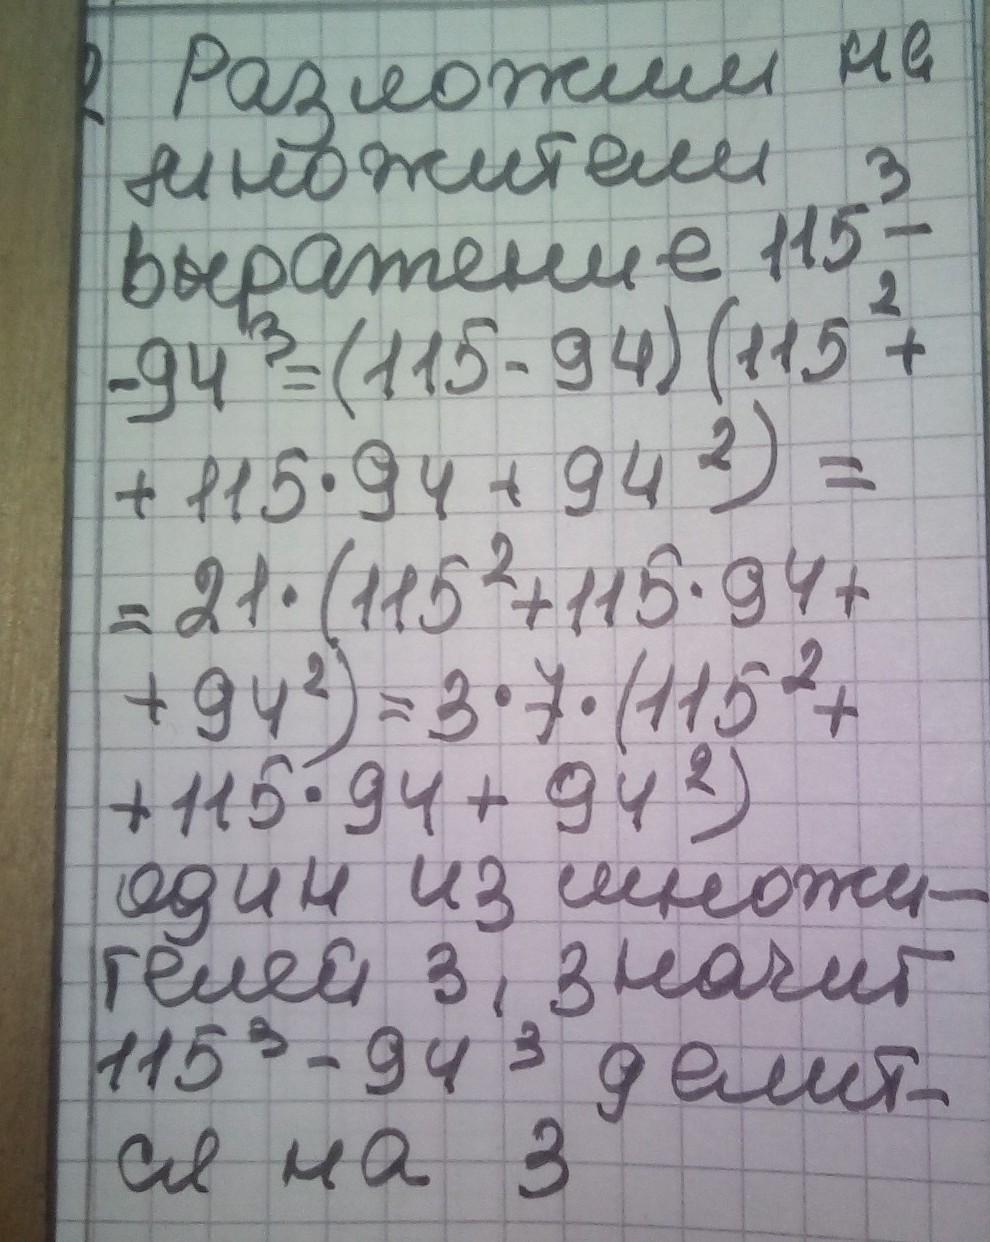 2 Разложим на
множители
выражение 115³-
-94³=(115-94)(115²+
+115·94+94²)=
=21·(115²+115·94+
+94²)=3·7·(115²+
+115·94+94²)
один из множи-
телей 3, значит
115³-94³ делит-
ся на 3